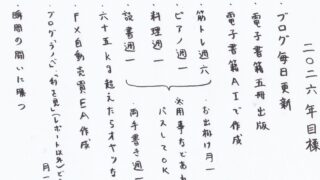 二〇二六年目標
・ブログ毎日更新
・電子書籍五冊出版
・電子書籍AIで作成
・筋トレ週六
・ピアノ週一
・料理週一
・読書週一
・お出掛け月一
※用事などあれ
パスしてOK
・両手書き週一
・六十五kg超えたらオヤツな
・FX自動売買EA作成
・ブログ
(レポート以外)
月一
・瞬間の闘いに勝つ